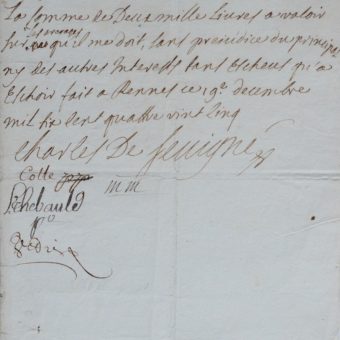 La somme de Deux mille Livres a valoir
sur ce qu'il me doit, sans preiudice du principal
ny des autres Interests tans Escheus qu'a
Eschoir fait a Rennes ce 19e decembre
mil six cens quattre vint cinq
Charles De Sevigné
Cotte
mm